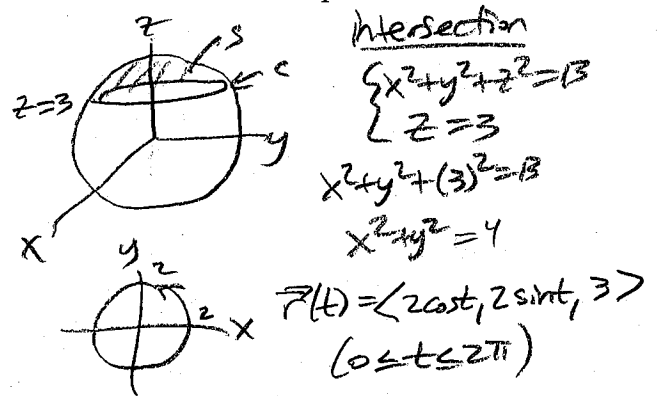 z
S
C
z=3
y
x
Intersection
{x²+y²+z²=13
{z=3
x²+y²+(3)²=13
x²+y²=4
y
2
2
x
r⃗(t)=<2cost, 2sint, 3>
(0≤t≤2π)